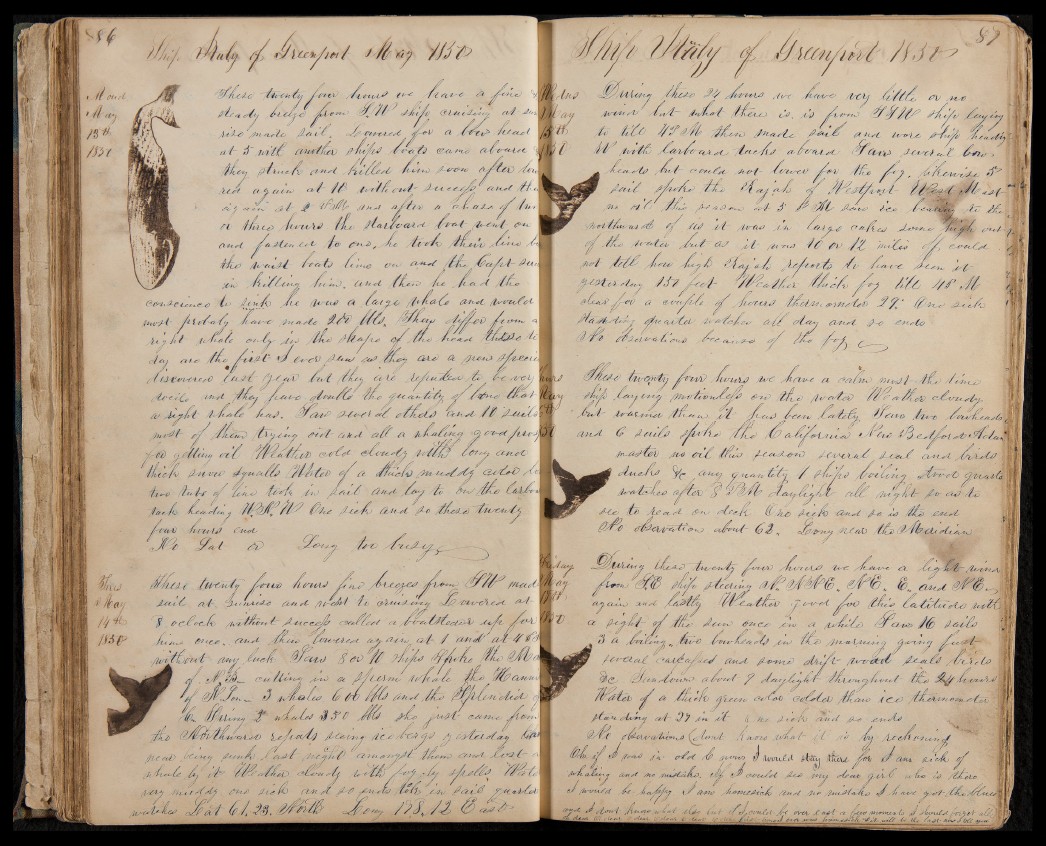 86
Ship Italy of Greenport May 1850
Mond
May
13th
1850
These twenty four hours we have a fine
steady breeze from S.W ship cruising at sun
rise made sail. Lowered for a bow head
at 5 with another ships boats came aboard
they struck and killed him soon after low
red again at 10 without success and the
again at P.M and after a chase of two
or three hours the starboard boat went on
and fastened to one, he took their line
the waist boats line on and the Capt
in killing him, and then he had the
conscience to sink he was a large whale and would
most probaly have made 200 bbls. They differ from a
right whale only in the shape of the head these to
day are the first I ever saw as they are a new specie
discovered last year but they are reputed to be very
docile and they have double the quantity of bone that
a right whale has. Saw several others and 10 sails
most of them trying out and all a whaling good
for getting oil Weather cold cloudy with long and
thick snow squalls Water of a thick muddy color
two tubs of line took in sail and lay to on the larbo
tack heading W.N.W One sick and so these twenty
four hours end
No Lat or Long too busy
Tues
May
14th
1850
These twenty four hours fine breezes from SW mad
sail at Sunrise and went to cruising Lowered at
8 oclock without success called a boatsteerer up for
hime once, and then lowered again at 1 and at 4
without any luck Saw 8 or 10 ships Spoke the
of N.B. cutting in a sperm whale the Hann
of N Lon 3 whales 600 bbls and the Splendid
2 whales 350 bbls she just came from
the Northward reports seeing ice bergs yesterday
near being sunk last night amongst them and lost a
whale by it Weather cloudy with foggy spells Wate
very muddy one sick and so ends took in sail quarter
watches Lat 61.23. North Long 178.12 East
87
Ship Italy of Greenport 1850
Wednes
May
15th
During these 24 hours we have very little or no
wind but what there is, is from SSW ship laying
to till 4 M then made sail and wore ship heading
W with larboard tacks aboard Saw several bow
heads but could not lower for the fog. likewise 5
sail spoke the Rajah of Westport West Mast
no oil this season at 5 PM saw ice bearing to the
northward of us it was in large cakes some high out
of the water but as it was 10 or 12 miles off could
not tell how high Rajah reports to have seen it
yesterday 150 feet Weather thick fog till 4 M
clear for a couple of hours thermometer 29° One sick
standing quarter watches all day and so ends
No observations because of the fog
These twenty four hours we have a calm most the time
ship laying motionless on the water Weather cloudy
but warmer than it has been lately. Saw two bowheads
and 6 sails spoke the California New Bedford
master no oil this season several seal and birds
ducks &c any quantity 1 ships boiling stood quarte
watches after 8 P.M daylight all night so as to
see to read on deck One sick and so is the end
No observation about 62. Long near the Meridian
Friday
May
17th
During these twenty four hours we have a light wind
from SE ship steering N. NNE. NE. E. and NE.
again and lastly Weather good for this latitude with
a sight of the sun once in a while Saw 16 sails
3 a boiling. two bowheads in the morning going fast
several carcasses and some drift wood seals birds
&c Sundown about 9 daylight throughout the 24 hours
Water of a thick green color colder than ice thermometer
standing at 27 in it no sick and so ends
No observations (dont know what it is by reckoning
Oh if I was in old C now I would stay there for I am sick of
whaling and no mistake. if I could see my dear girl who is there
I would be happy I am homesick and no mistake I have got the blues
and I dont know what else but if I could be over east a few moments I should forget all